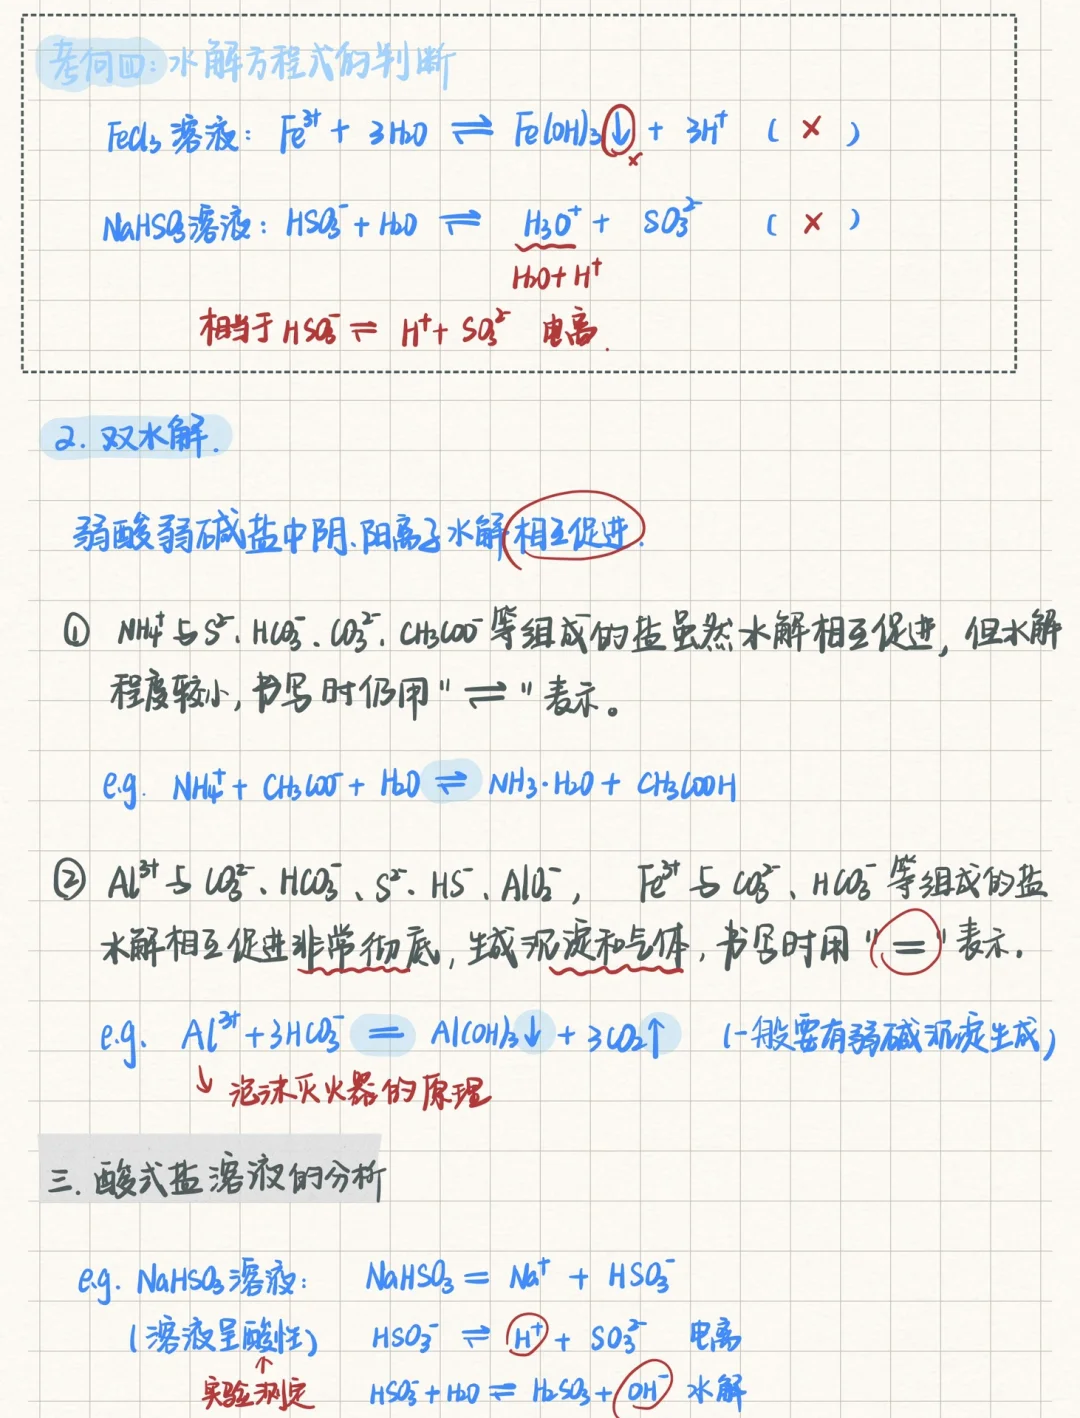 考向四:水解方程式的判断
FeCl₃溶液: Fe³⁺ + 3H₂O ⇌ Fe(OH)₃↓ + 3H⁺ ( × )
×
NaHSO₃溶液: HSO₃⁻ + H₂O ⇌ H₃O⁺ + SO₃²⁻ ( × )
H₂O + H⁺
相当于 HSO₃⁻ ⇌ H⁺ + SO₃²⁻ 电离.
2. 双水解.
弱酸弱碱盐中阴、阳离子水解相互促进.
① NH₄⁺与S²⁻、HCO₃⁻、CO₃²⁻、CH₃COO⁻等组成的盐虽然水解相互促进, 但水解
程度较小, 书写时仍用"⇌"表示。
e.g. NH₄⁺ + CH₃COO⁻ + H₂O ⇌ NH₃·H₂O + CH₃COOH
② Al³⁺与CO₃²⁻、HCO₃⁻、S²⁻、HS⁻、AlO₂⁻, Fe³⁺与CO₃²⁻、HCO₃⁻等组成的盐
水解相互促进非常彻底, 生成沉淀和气体, 书写时用"="表示.
e.g. Al³⁺ + 3HCO₃⁻ = Al(OH)₃↓ + 3CO₂↑ (一般要有弱碱沉淀生成)
↘ 泡沫灭火器的原理
三. 酸式盐溶液的分析
e.g. NaHSO₃溶液: NaHSO₃ = Na⁺ + HSO₃⁻
(溶液呈酸性) HSO₃⁻ ⇌ H⁺ + SO₃²⁻ 电离
↑
实验测定 HSO₃⁻ + H₂O ⇌ H₂SO₃ + OH⁻ 水解